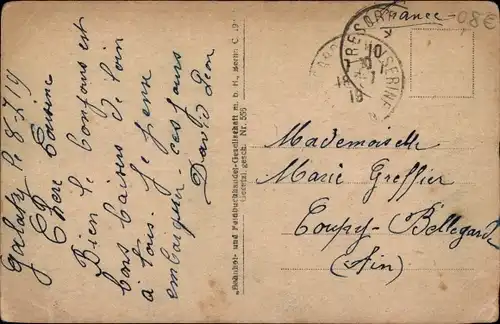 Galatz le 8-7-19
Chère Cousine
Bien le bonjour et
bons baisers de loin
à tous. Je pense
embarquer ces jours
David Léon
"Bahnhof- und Feldbuchhandel-Gesellschaft m. b. H., Berlin
(Gesetzl. gesch. Nr. 555
France
08€
TRESOR
10
7
19
Mademoiselle
Marie Greffier
Coupy-Bellegarde
(Ain)